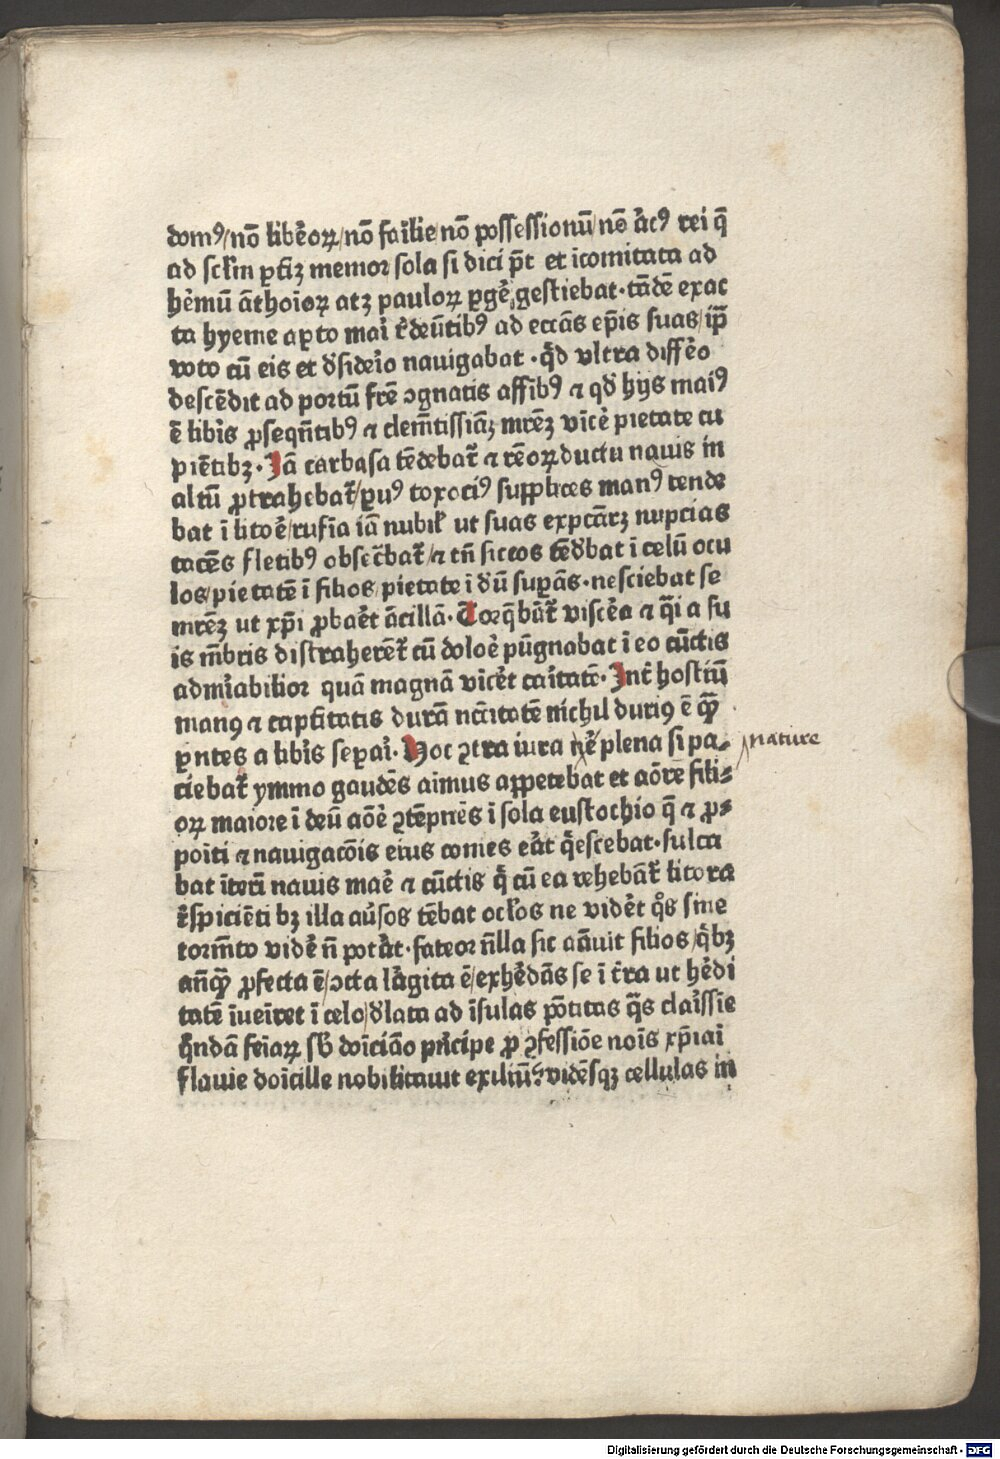 domꝰ/nō libe̅oꝝ/nō fa̅ilie/nō possessionū/nō a̅cꝰ rei q̄
ad sc̅lm ꝑti̅ꝫ memor/sola si dici p̅t et i̅comitata ad
he̅mū a̅thoi̅oꝝ atꝫ pauloꝝ ꝑge̅ gestiebat·ta̅dē exac
ta hyeme aꝑto mai̅ r̅deu̅tibꝰ ad ecc̅as ep̅is suas/ip̅
voto cū eis et d̅side̅io nauigabat·q̅d vltra diffe̅o
desce̅dit ad portū fr̅e ↄgnatis affi̅bꝰ ⁊ qd̅ hys maiꝰ
ē libe̅is ꝓseqn̅tibꝰ ⁊ clem̅tissia̅ꝫ mr̅eꝫ vi̅ce̅ pietate cu
pie̅tibꝫ·Ja̅ carbasa te̅debat̅ ⁊ re̅oꝝ ductu nauis in
altū ꝓtrahebat̅/ꝑuꝰ toxociꝰ supplices manꝰ tende
bat i̅ lito̅e/rufi̅a ia̅ nubil̅ ut suas expc̅arꝫ nupcias
tace̅s fletibꝰ obsec̅bat̅/⁊ tn̅ siccos te̅d̅bat i̅ celū ocu
los/pietatē i̅ filios/pietate i̅ d̅ū suꝑa̅s·nesciebat se
mr̅eꝫ ut xp̅i ꝓbae̅t a̅cillā·Torq̅ba̅t̅ visce̅a ⁊ q̅i a su
is m̅bris distrahere̅t̅ cū doloe̅ pu̅gnabat i̅ eo cu̅ctis
admi̅abilior quā magnā vi̅ce̅t cai̅tatē·Int̅ hostiū
manꝰ ⁊ captiitatis durā nc̅citatē nichil duriꝰ ē qꝫ̅
ꝑntes a libe̅is seꝑai̅·Hoc ↄtra iura ne̅ plena si pa⸗ nature
ciebat̅ ymmo gaude̅s ai̅mus appetebat et ao̅re fili⸗
oꝝ maiore i̅ deū ao̅e̅ ↄte̅pne̅s i̅ sola eustochio q̄ ⁊ ꝓ⸗
poiti ⁊ nauigaco̅is eius comes ea̅t q̅escebat·sulca
bat i̅teri̅ nauis mae̅ ⁊ cu̅ctis q̅ cū ea vehebant̅ litora
r̅spicie̅tibꝫ illa au̅sos te̅bat ocl̅os ne vide̅t q̅s sine
torm̅to vide̅ n̅ pota̅t·fateor n̅lla sic a̅auit filios/q̅bꝫ
an̅qꝫ̅ ꝓfecta ē/ↄcta la̅gita ē/exhe̅da̅s se i̅ t̅ra ut he̅di
tatē i̅uei̅ret i̅ celo/d̅lata ad i̅sulas po̅titas q̅s clai̅ssie
q̅ndā fei̅aꝝ sb̅ doi̅cia̅o pn̅cipe ꝓ ↄfessio̅e noi̅s xp̅iai̅
flauie doi̅cille nobilitauit exiliū:vide̅sqꝫ cellulas in
Digitalisierung gefördert durch die Deutsche Forschungsgemeinschaft · DFG